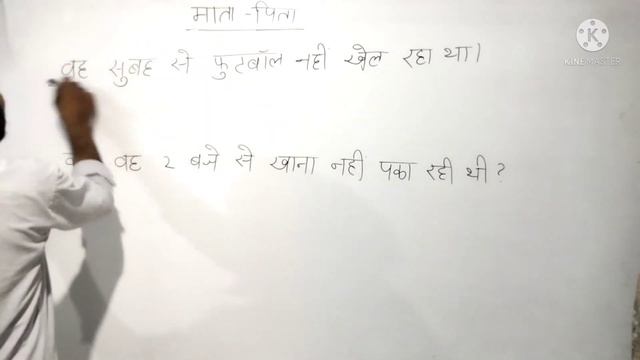 माता-पिता
वह सुबह से फुटबॉल नही खेल रहा था।
वह २ बजे से खाना नही पका रही थी?
K
KINEMASTER